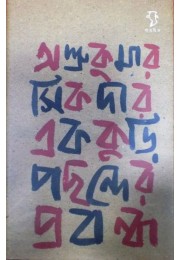 অশ্রুকুমার
সিকদার
এককুড়ি
পছন্দের
প্রবন্ধ